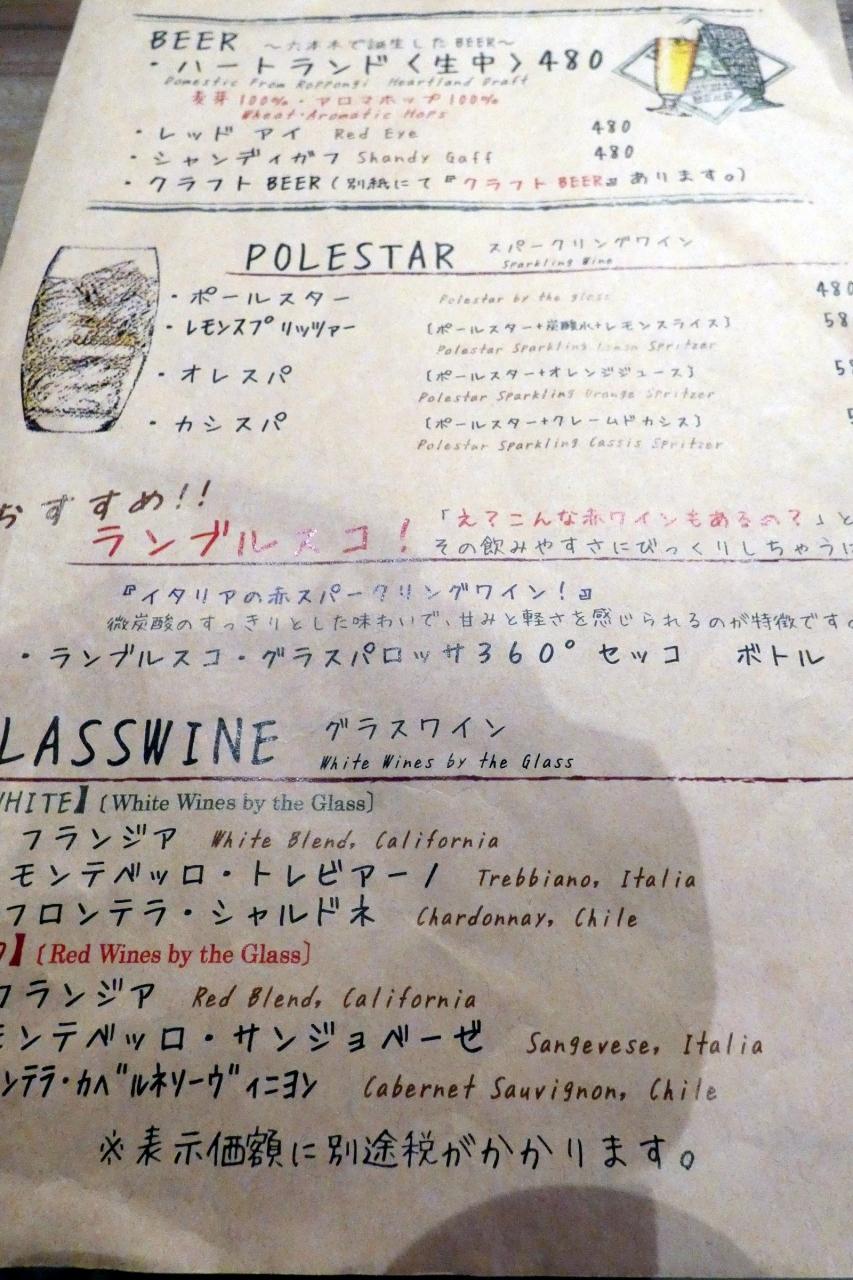 BEER ～六本木で誕生したBEER～
・ハートランド〈生中〉480
Domestic From Roppongi Heartland Draft
麦芽100%・アロマホップ100%
Wheat・Aromatic Hops
・レッド アイ Red Eye 480
・シャンディガフ Shandy Gaff 480
・クラフト BEER(別紙にて『クラフト BEER』あります。)
POLESTAR スパークリングワイン
Sparkling Wine
・ポールスター Polestar by the glass 480
・レモンスプリッツァー [ポールスター+炭酸水+レモンスライス] 58
Polestar Sparkling Lemon Spritzer
・オレスパ [ポールスター+オレンジジュース] 5
Polestar Sparkling Orange Spritzer
・カシスパ [ポールスター+クレームドカシス] 5
Polestar Sparkling Cassis Spritzer
おすすめ!!
ランブルスコ! 「え?こんな赤ワインもあるの?」と
その飲みやすさにびっくりしちゃうに
『イタリアの赤スパークリングワイン!』
微炭酸のすっきりとした味わいで、甘みと軽さを感じられるのが特徴です。
・ランブルスコ・グラスパロッサ360° セッコ ボトル
LASSWINE グラスワイン
White Wines by the Glass
WHITE】[White Wines by the Glass]
フランジア White Blend, California
モンテベッロ・トレビアーノ Trebbiano, Italia
フロンテラ・シャルドネ Chardonnay, Chile
D】[Red Wines by the Glass]
フランジア Red Blend, California
モンテベッロ・サンジョベーゼ Sangevese, Italia
ンテラ・カベルネソーヴィニヨン Cabernet Sauvignon, Chile
※表示価額に別途税がかかります。